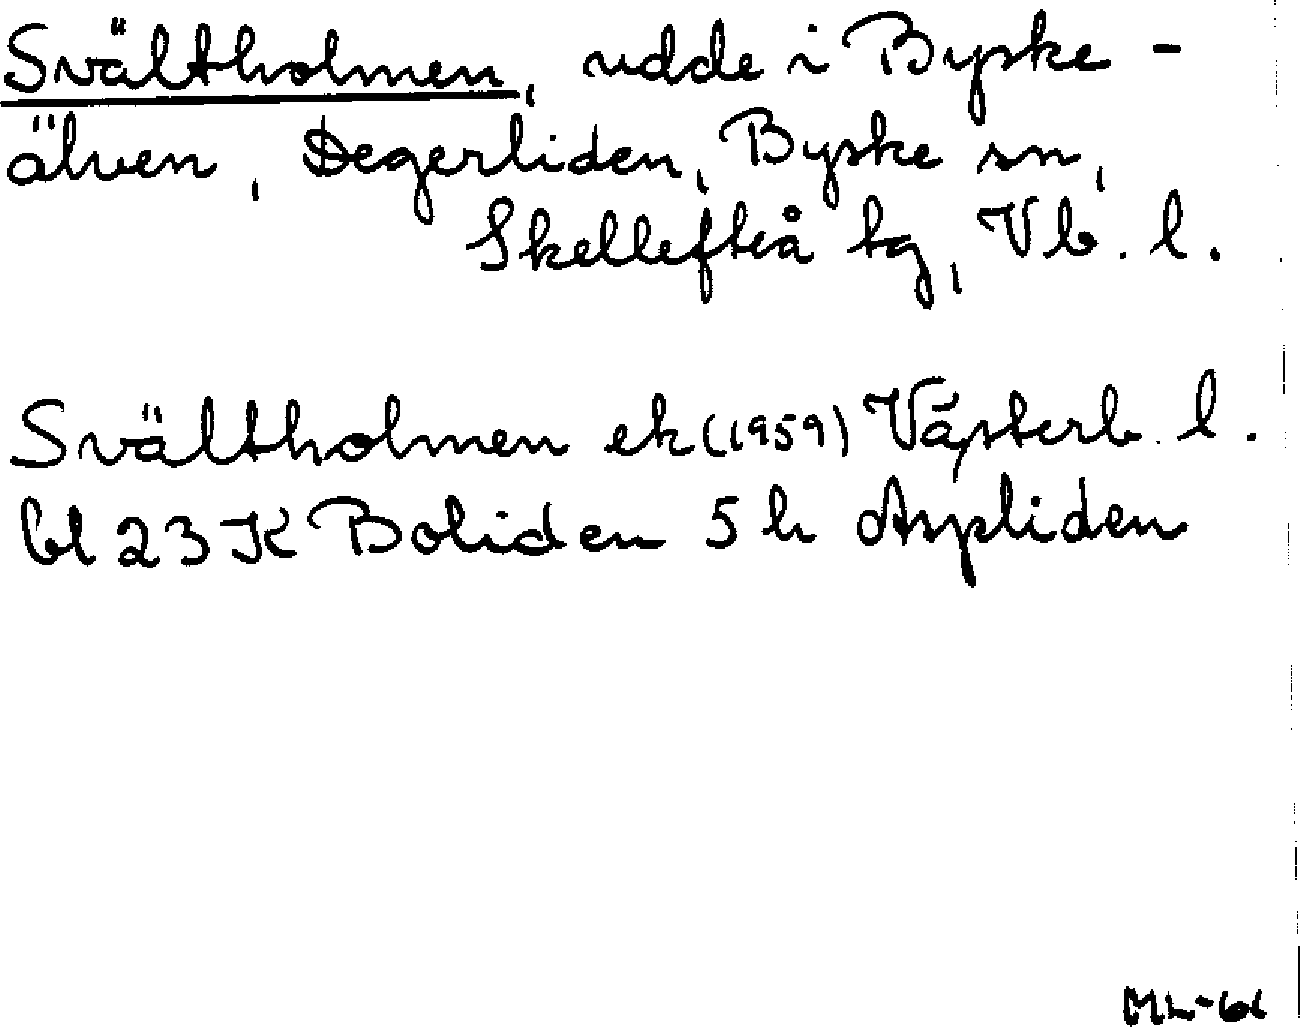 Svältholmen, udde i Byske-
älven, Degerliden, Byske sn,
Skellefteå tg, Vb. l.
Svältholmen ek (1959) Västerb. l.
bl 23 K Boliden 5 h Aspliden